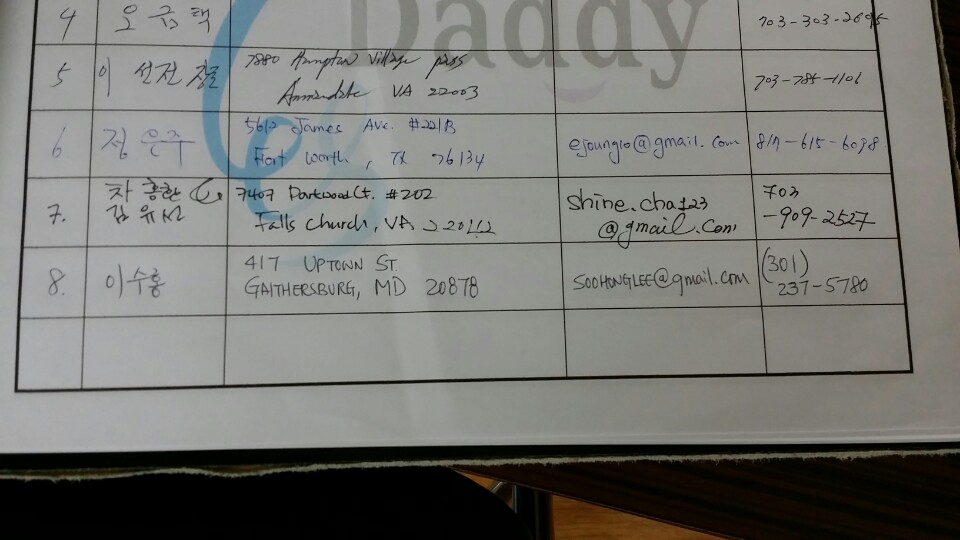 Daddy
4 오금택 703-303-2695
5 이선전 장로 7880 Hampton Village pass
Annandale VA 22003 703-785-1101
6 정은주 5612 James Ave. #221B
Fort Worth, TX 76134 ejoung10@gmail.com 817-615-6098
7. 차홍환 7407 Parkwood Ct. #202
김유선 Falls Church, VA 22042 shine.cha123
@gmail.com 703
-909-2527
8. 이수홍 417 UPTOWN ST
GAITHERSBURG, MD 20878 SOOHONGLEE@gmail.com (301)
237-5780